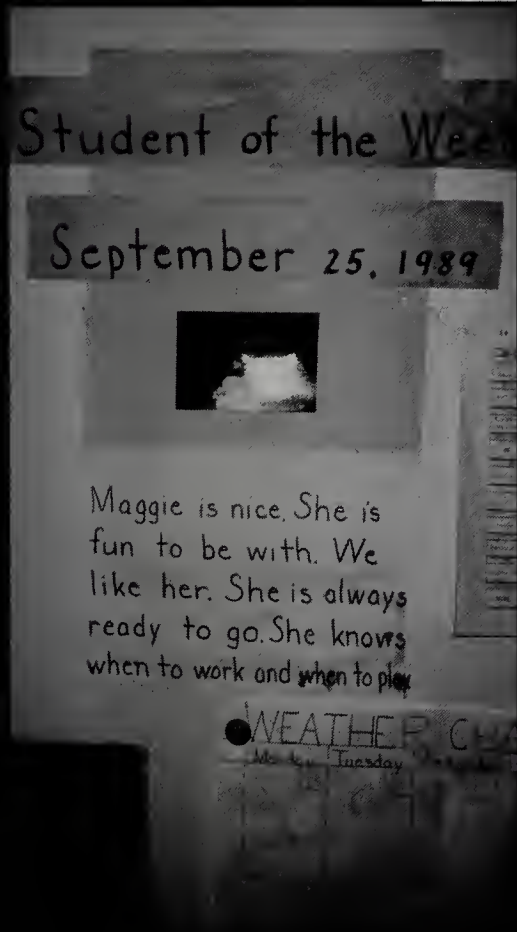 Student of the Week
September 25, 1989
Maggie is nice. She is
fun to be with. We
like her. She is always
ready to go. She knows
when to work and when to play
WEATHER
Tuesday